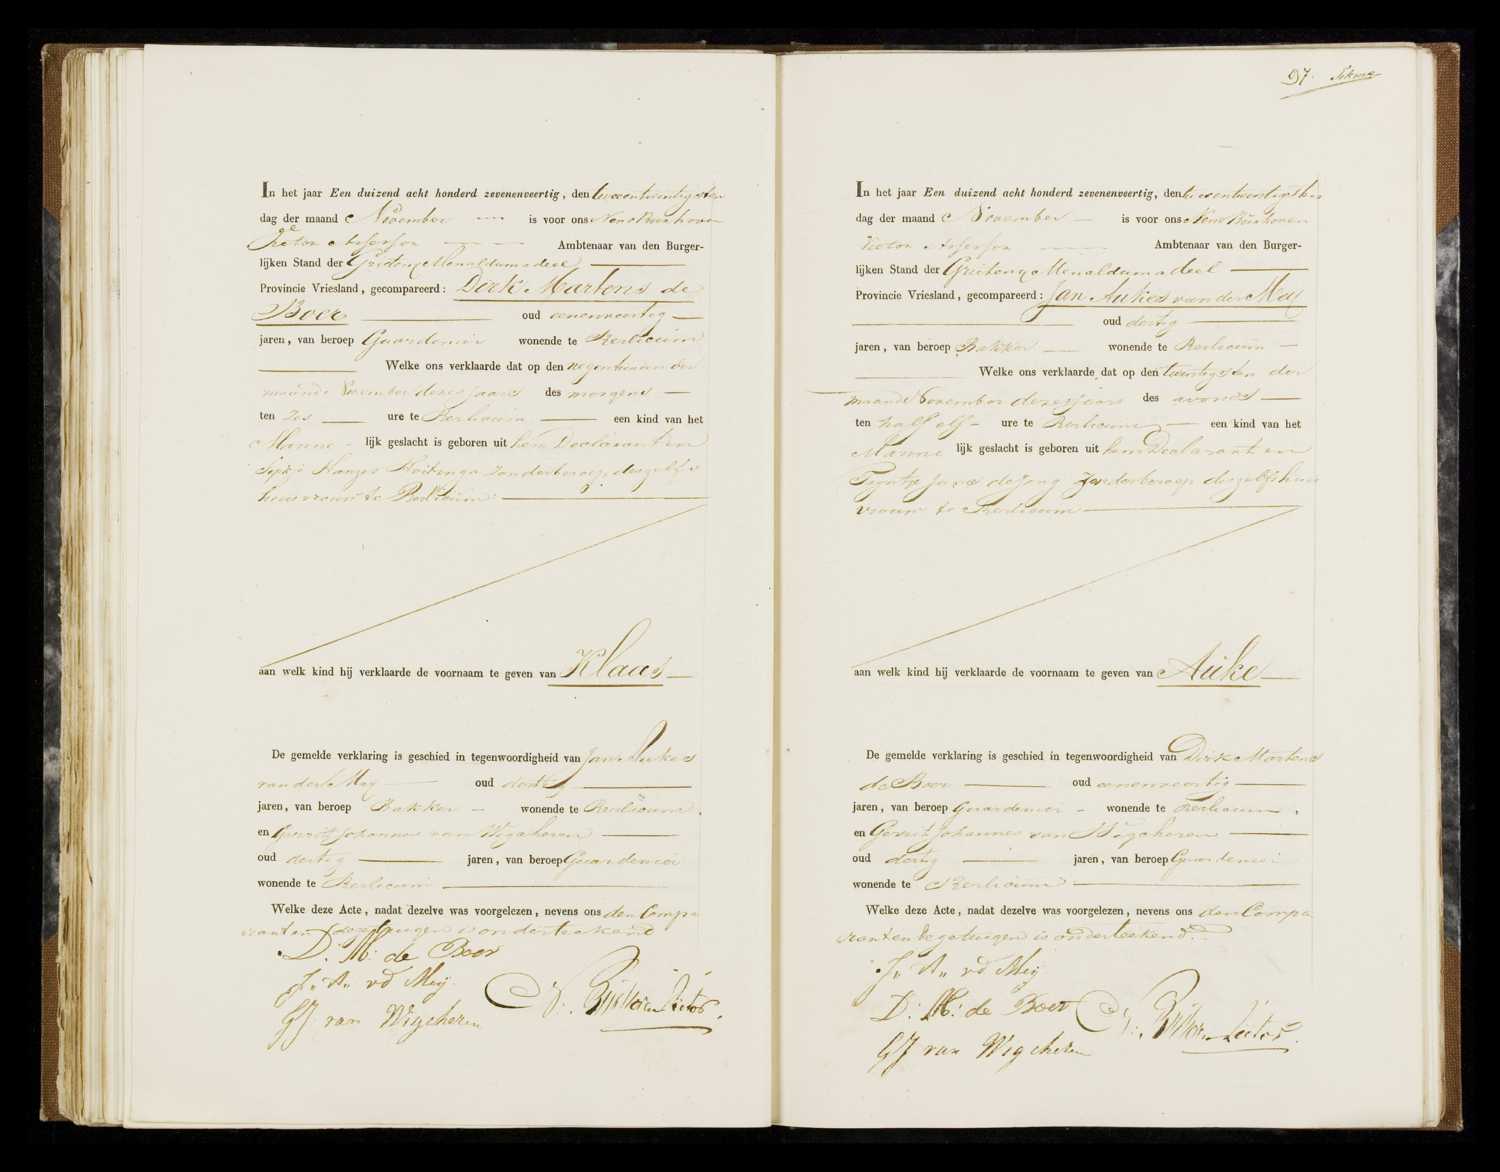 In het jaar Een duizend acht honderd zevenenveertig, den tweeentwintigsten
dag der maand November is voor ons
Ambtenaar van den Burger-
lijken Stand der Grietenij Menaldumadeel
Provincie Vriesland, gecompareerd: Dirk Martens de
Boer oud eenenveertig
jaren, van beroep Guardenier wonende te Berlicum
Welke ons verklaarde dat op den negentienden der
maand November dezes jaars des morgens
ten zes ure te Berlicum een kind van het
Manne lijk geslacht is geboren uit hem Declarant en
zonderberoep, deszelfs
huisvrouw te Berlicum
aan welk kind hij verklaarde de voornaam te geven van Klaas
De gemelde verklaring is geschied in tegenwoordigheid van Jan Aukes
van der Meij oud dertig
jaren, van beroep Bakker wonende te Berlicum
en Gerrit Johannes van Wigcheren
oud dertig jaren, van beroep Guardenier
wonende te Berlicum
Welke deze Acte, nadat dezelve was voorgelezen, nevens ons den Compa
rant en de getuigen is onderteekend
D. M. de Boer
J. A. vd Meij
GJ van Wigcheren
97.
In het jaar Een duizend acht honderd zevenenveertig, den tweeentwintigsten
dag der maand November is voor ons
Ambtenaar van den Burger-
lijken Stand der Grietenij Menaldumadeel
Provincie Vriesland, gecompareerd: Jan Aukes van der Meij
oud dertig
jaren, van beroep Bakker wonende te Berlicum
Welke ons verklaarde dat op den twintigsten der
maand November dezes jaars des avonds
ten half elf ure te Berlicum een kind van het
Manne lijk geslacht is geboren uit hem Declarant en
de Jong zonderberoep deszelfs huis
vrouw te Berlicum
aan welk kind hij verklaarde de voornaam te geven van Auke
De gemelde verklaring is geschied in tegenwoordigheid van Dirk Martens
de Boer oud eenenveertig
jaren, van beroep Guardenier wonende te Berlicum
en Gerrit Johannes van Wigcheren
oud dertig jaren, van beroep Guardenier
wonende te Berlicum
Welke deze Acte, nadat dezelve was voorgelezen, nevens ons den Compa
rant en de getuigen is onderteekend
J. A. vd Meij
D. M. de Boer
GJ van Wigcheren